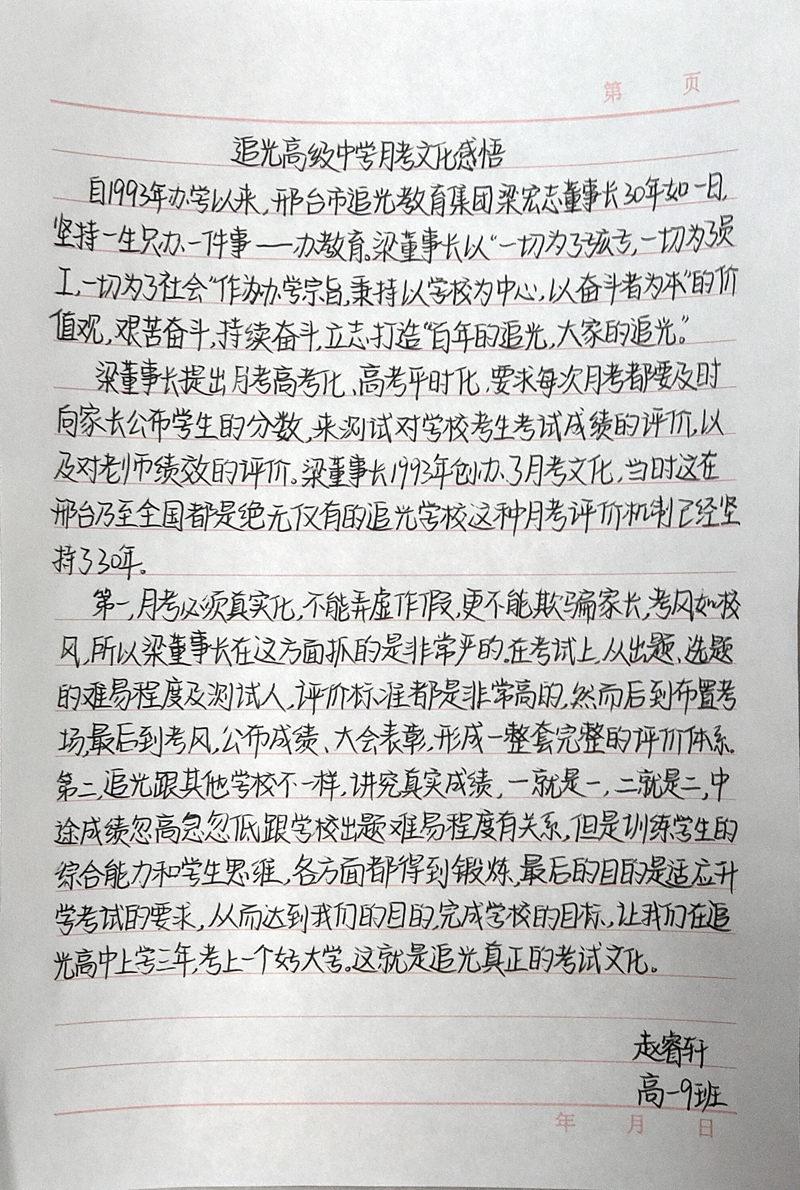 第 页
追光高级中学月考文化感悟
自1993年办学以来,邢台市追光教育集团梁宏志董事长30年如一日,
坚持一生只办一件事——办教育。梁董事长以“一切为了孩子,一切为了员
工,一切为了社会”作为办学宗旨,秉持以学校为中心,以奋斗者为本”的价
值观,艰苦奋斗,持续奋斗,立志打造“百年的追光,大家的追光。”
梁董事长提出月考高考化、高考平时化,要求每次月考都要及时
向家长公布学生的分数,来测试对学校考生考试成绩的评价,以
及对老师绩效的评价。梁董事长1993年创办了月考文化,当时这在
邢台乃至全国都是绝无仅有的追光学校这种月考评价机制已经坚
持了30年。
第一,月考必须真实化,不能弄虚作假,更不能欺骗家长,考风如校
风,所以梁董事长在这方面抓的是非常严的。在考试上,从出题、选题
的难易程度及测试人,评价标准都是非常高的,然而后到布置考
场,最后到考风,公布成绩、大会表彰,形成一整套完整的评价体系。
第二,追光跟其他学校不一样,讲究真实成绩,一就是一,二就是二,中
途成绩忽高忽忽低跟学校出题难易程度有关系,但是训练学生的
综合能力和学生思维,各方面都得到锻炼,最后的目的是适应升
学考试的要求,从而达到我们的目的,完成学校的目标,让我们在追
光高中上学三年,考上一个好大学。这就是追光真正的考试文化。
赵睿轩
高一9班
年 月 日